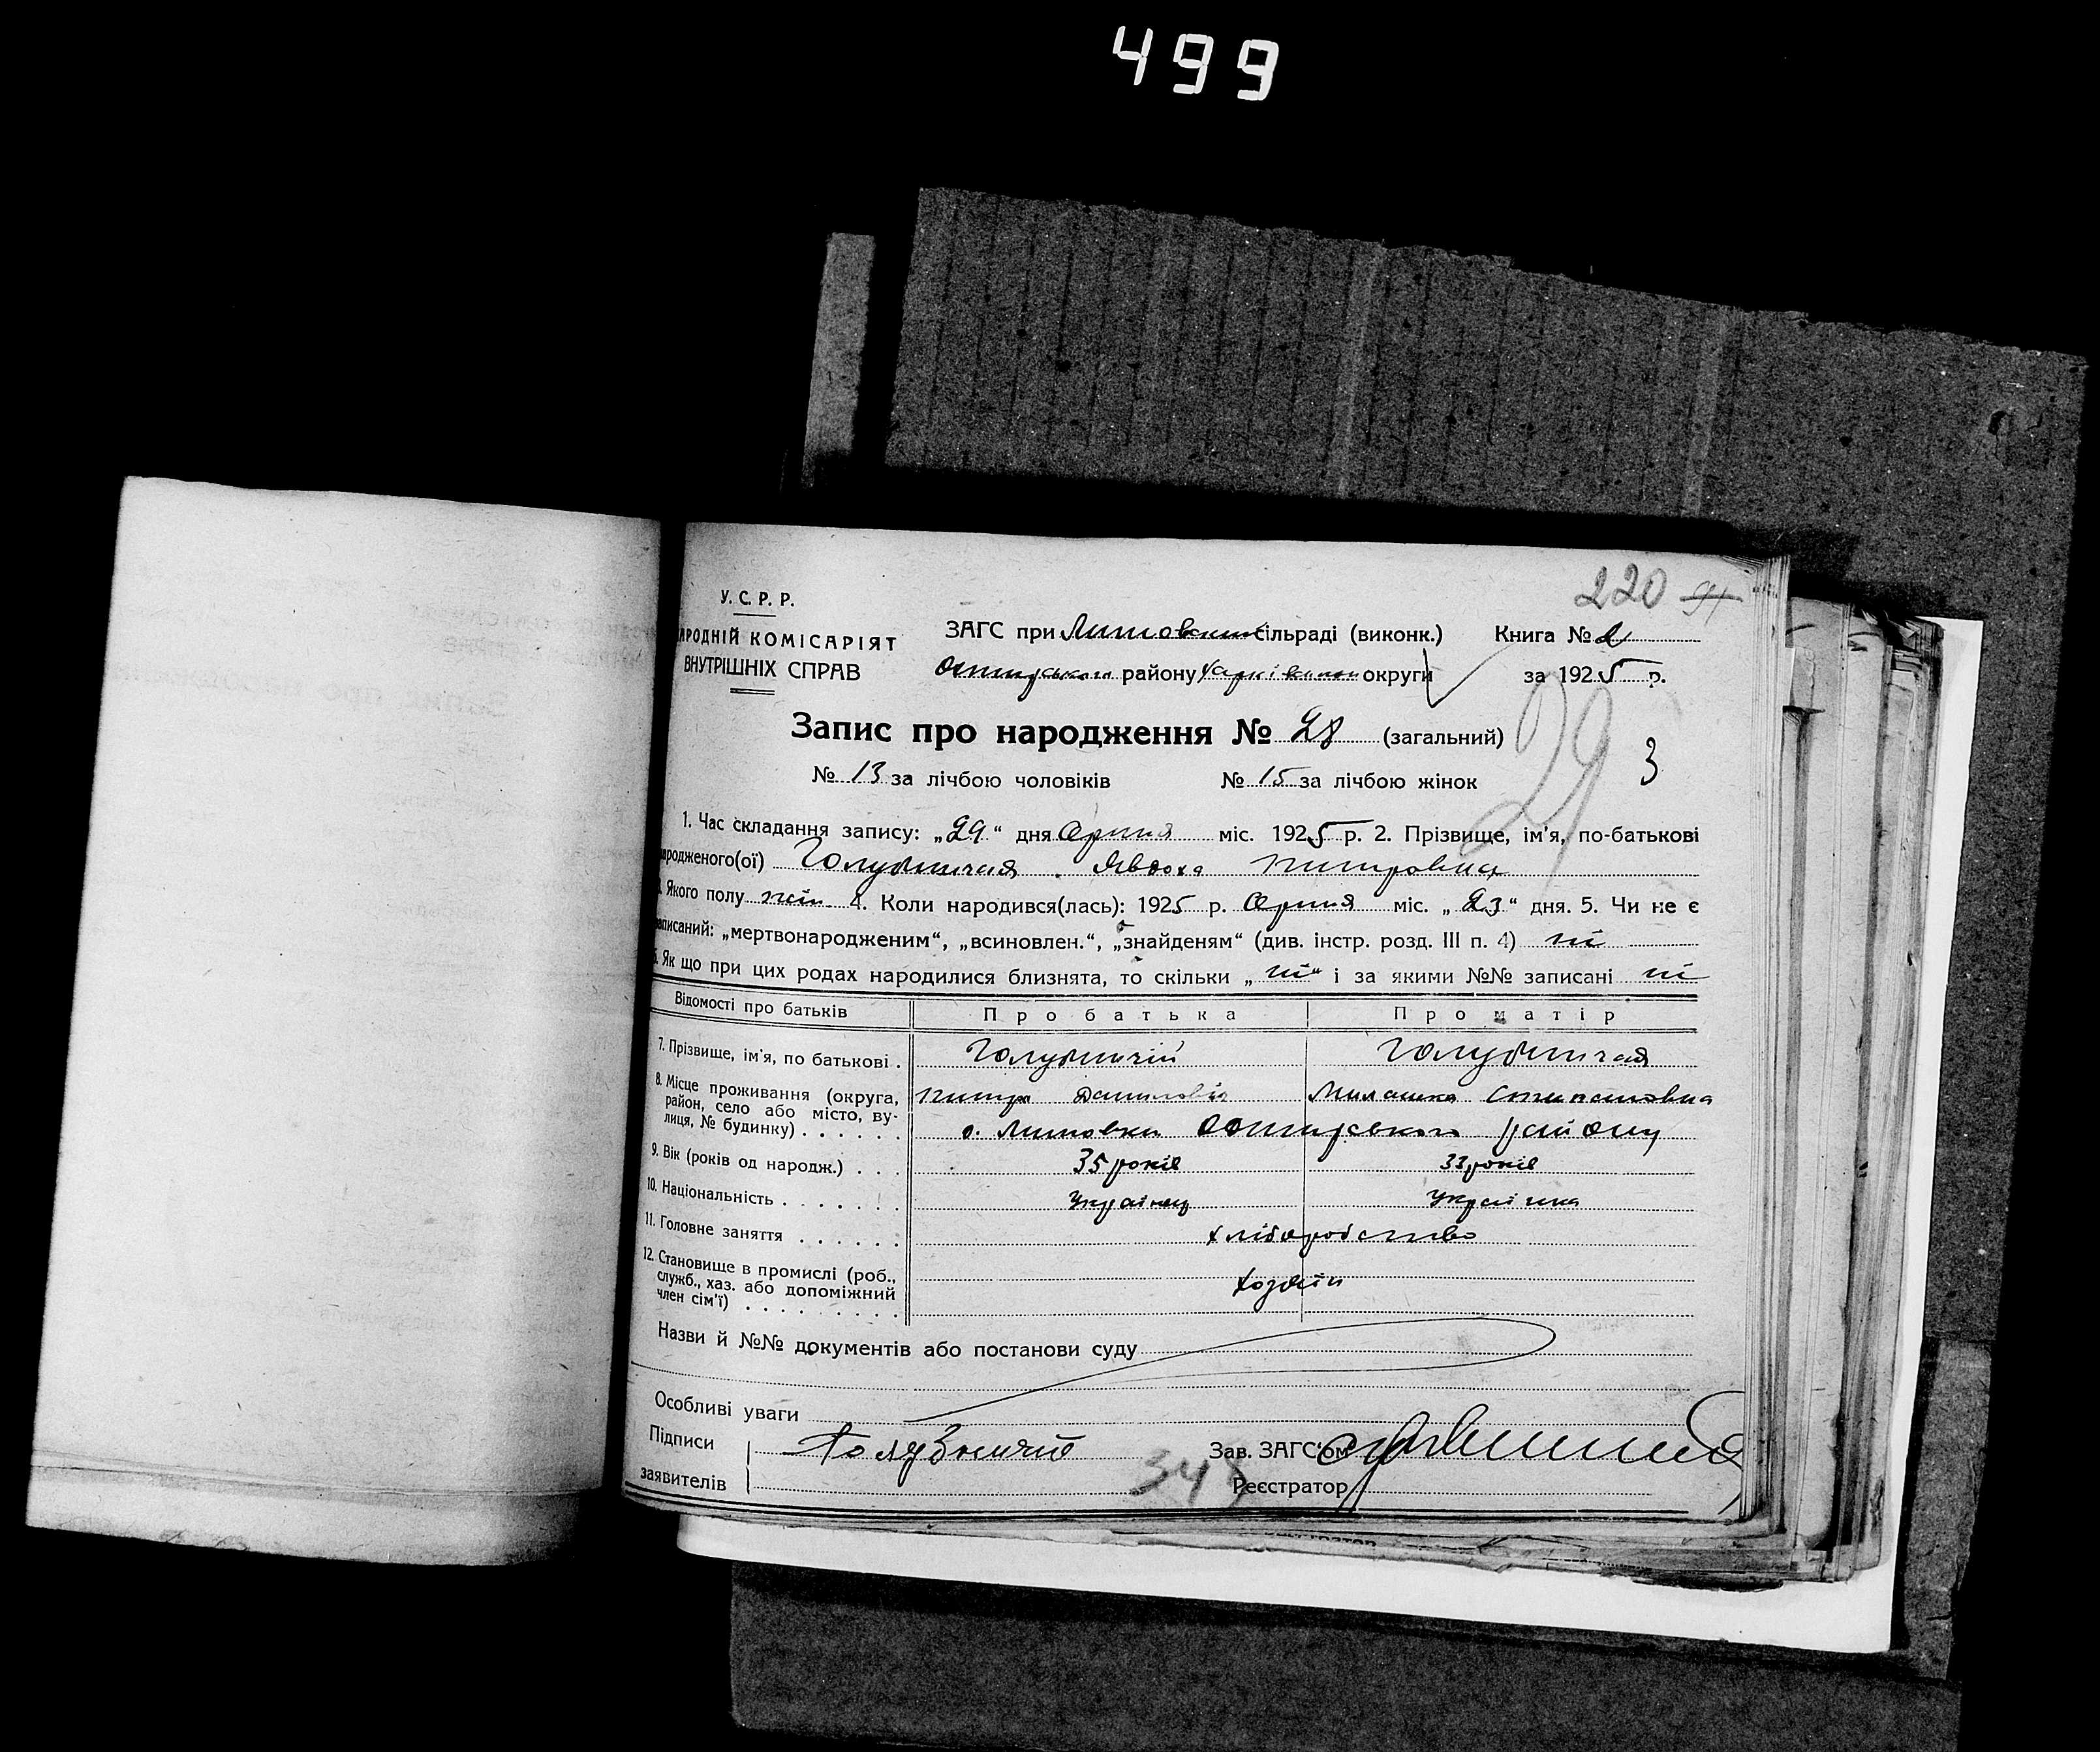 499
220 91
У. С. Р. Р.
НАРОДНІЙ КОМІСАРІЯТ
ВНУТРІШНІХ СПРАВ
ЗАГС при Литовській сільраді (виконк.) Книга № 2
району Харківської округи за 1925 р.
Запис про народження № 28 (загальний)
29 3
№ 13 за лічбою чоловіків № 15 за лічбою жінок
1. Час складання запису: „29“ дня Серпня міс. 1925 р. 2. Прізвище, ім'я, по-батькові
народженого(ої) Голубничая Явдоха Питровна
3. Якого полу жін. 4. Коли народився(лась): 1925 р. Серпня міс. „23“ дня. 5. Чи не є
записаний: „мертвонародженим“, „всиновлен.“, „знайденям“ (див. інстр. розд. III п. 4) ні
6. Як що при цих родах народилися близнята, то скільки „ні“ і за якими №№ записані ні
Відомості про батьків Про батька Про матір
7. Прізвище, ім'я, по батькові . Голубничій Голубничая
8. Місце проживання (округа, Питро Данилович Милашка Степановна
район, село або місто, ву-
лиця, № будинку) . . . . . . с. Литовки району
9. Вік (років од народж.) . . . 35 років 33 років
10. Національність . . . . . . . Українец Українка
11. Головне заняття . . . . . . хліборобство
12. Становище в промислі (роб.,
служб., хаз. або допоміжний хозяїн
член сім'ї) . . . . . . . . .
Назви й №№ документів або постанови суду
Особливі уваги
Підписи Голубничий Зав. ЗАГС'ом
заявителів 348 Реєстратор